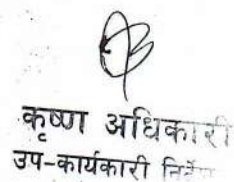 कृष्ण अधिकारी
उप-कार्यकारी